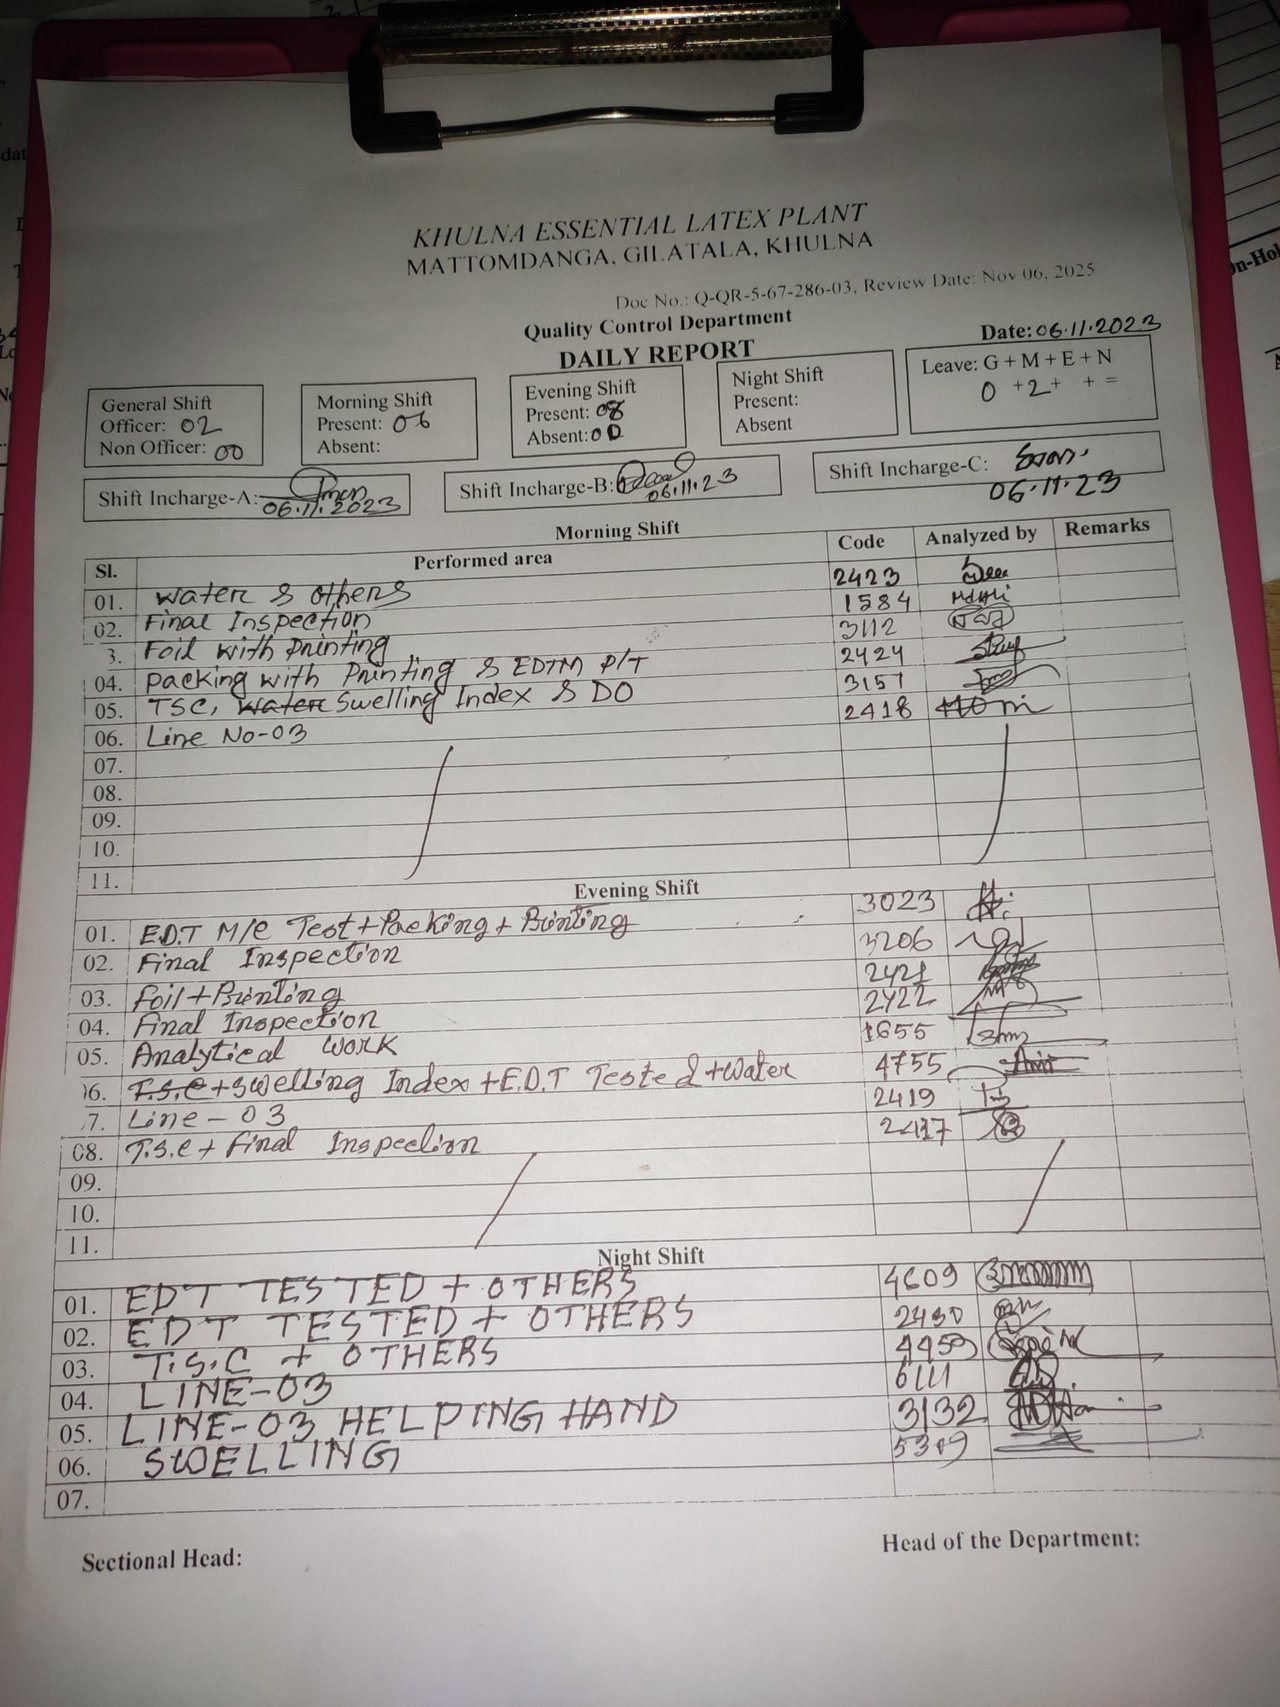 KHULNA ESSENTIAL LATEX PLANT
MATTOMDANGA, GILATALA, KHULNA
Doc No.: Q-QR-5-67-286-03, Review Date: Nov 06, 2025
Quality Control Department
Date: 06.11.2023
DAILY REPORT
General Shift
Officer: 02
Non Officer: 00
Morning Shift
Present: 06
Absent:
Evening Shift
Present: 08
Absent: 00
Night Shift
Present:
Absent
Leave: G + M + E + N
0 +2+ + =
Shift Incharge-A:
06.11.2023
Shift Incharge-B:
06.11.23
Shift Incharge-C:
06.11.23
Morning Shift
Sl. Performed area Code Analyzed by Remarks
01. Water & others 2423
02. Final Inspection 1584
3. Foil with printing 3112
04. Packing with Printing & EDTM P/T 2424
05. TSC, Water Swelling Index & DO 3157
06. Line No-03 2418
07.
08.
09.
10.
11.
Evening Shift
01. E.D.T M/C Test+Packing+Printing 3023
02. Final Inspection 3206
03. Foil+Printing 2421
04. Final Inspection 2422
05. Analytical Work 1655
06. T.S.C+Swelling Index+E.D.T Tested+Water 4755
7. Line-03 2419
08. T.S.C+ Final Inspection 2417
09.
10.
11.
Night Shift
01. EDT TESTED + OTHERS 4609
02. EDT TESTED + OTHERS 2430
03. T.S.C + OTHERS 4459
04. LINE-03 6111
05. LINE-03 HELPING HAND 3132
06. SWELLING 5309
07.
Sectional Head:
Head of the Department: